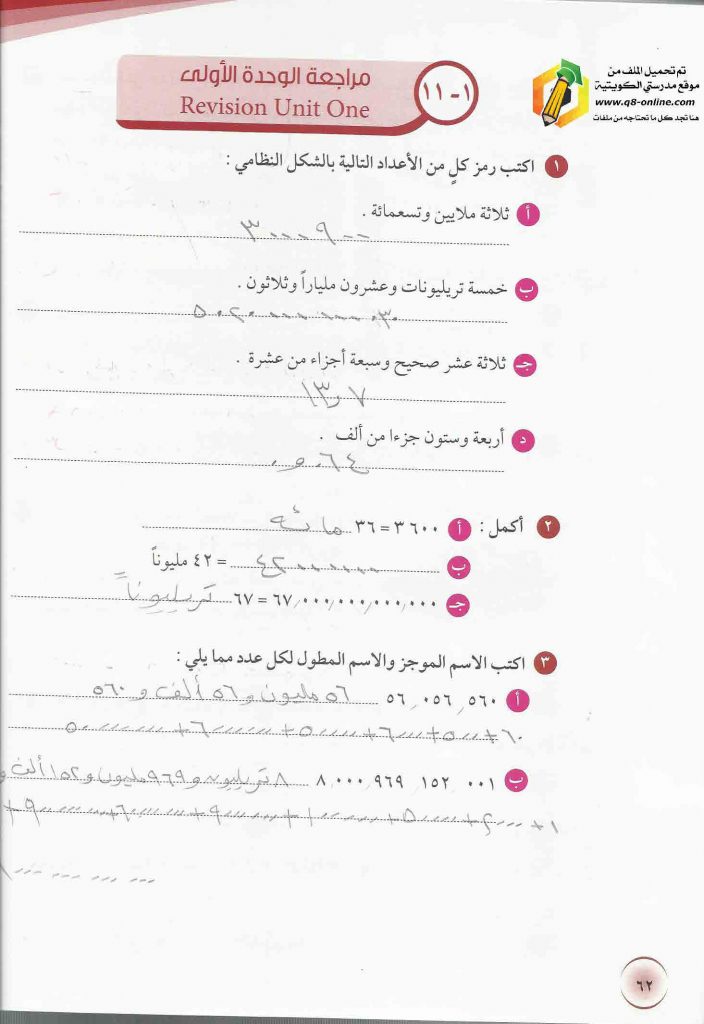 تم تحميل الملف من
موقع مدرستي الكويتية
www.q8-online.com
هنا تجد كل ما تحتاجه من ملفات
١-١١
مراجعة الوحدة الأولى
Revision Unit One
١ اكتب رمز كلٍ من الأعداد التالية بالشكل النظامي :
أ ثلاثة ملايين وتسعمائة .
٣٠٠٠٩٠٠
ب خمسة تريليونات وعشرون ملياراً وثلاثون .
٥٠٢٠٠٠٠٠٠٠٣٠
جـ ثلاثة عشر صحيح وسبعة أجزاء من عشرة .
١٣,٧
د أربعة وستون جزءا من ألف .
٠,٠٦٤
٢ أكمل : أ ٣٦٠٠ = ٣٦ مائة
ب ٤٢٠٠٠٠٠٠ = ٤٢ مليوناً
جـ ٦٧,٠٠٠,٠٠٠,٠٠٠,٠٠٠ = ٦٧ تريليوناً
٣ اكتب الاسم الموجز والاسم المطول لكل عدد مما يلي :
أ ٥٦,٠٥٦,٥٦٠ ٥٦ مليون و ٥٦ ألف و ٥٦٠
ب ٨,٠٠٠,٩٦٩,١٥٢,٠٠١ ٨ تريليون و ٩٦٩ مليون و ١٥٢ ألف و
٦٢